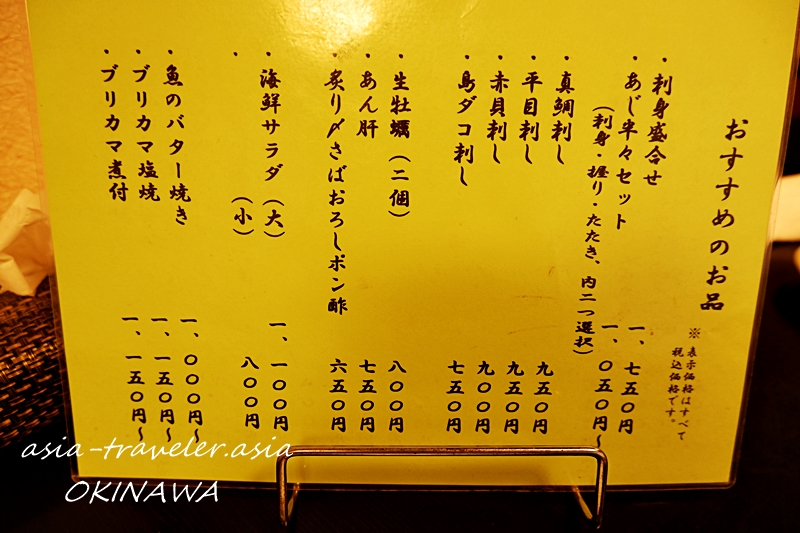 おすすめのお品
※表示価格はすべて
税込価格です。
・刺身盛合せ 一、七五〇円
・あじ半々セット 一、〇五〇円〜
(刺身・握り・たたき、内二つ選択)
・真鯛刺し 九五〇円
・平目刺し 九五〇円
・赤貝刺し 九〇〇円
・島ダコ刺し 七五〇円
・生牡蠣(二個) 八〇〇円
・あん肝 七五〇円
・炙り〆さばおろしポン酢 六五〇円
・海鮮サラダ(大) 一、一〇〇円
・(小) 八〇〇円
・魚のバター焼き 一、〇〇〇円〜
・ブリカマ塩焼 一、一五〇円〜
・ブリカマ煮付 一、一五〇円〜
asia-traveler.asia
OKINAWA